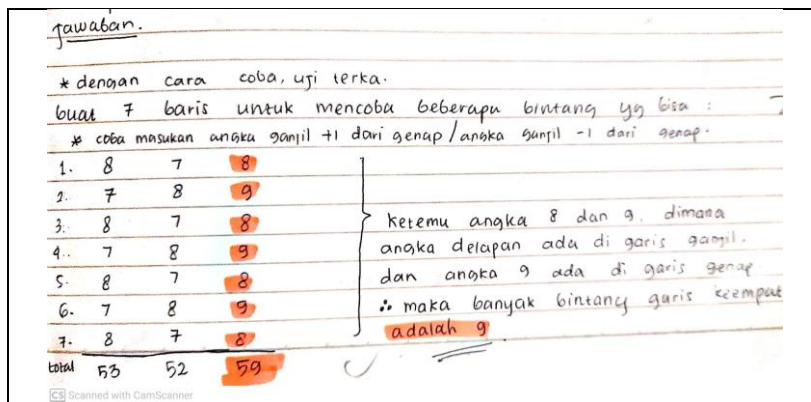 Jawaban.
* dengan cara coba, uji terka.
buat 7 baris untuk mencoba beberapa bintang yg bisa :
* coba masukan angka ganjil +1 dari genap / angka ganjil -1 dari genap.
1. 8 7 8
2. 7 8 9
3. 8 7 8
4. 7 8 9
5. 8 7 8
6. 7 8 9
7. 8 7 8
total 53 52 59
ketemu angka 8 dan 9. dimana
angka delapan ada di garis ganjil.
dan angka 9 ada di garis genap
∴ maka banyak bintang garis keempat
adalah 9
CS Scanned with CamScanner